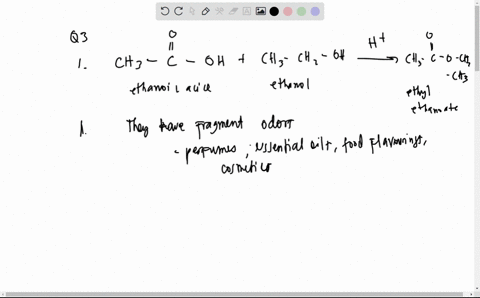 Q3
O O
1. CH3 - C - OH + CH3 - CH2 - OH H+ → CH3 - C - O - CH2
- CH3
ethanoic acid ethanol ethyl
ethanoate
1. They have fragment odors
- perfumes, essential oils, food flavourings,
cosmetics